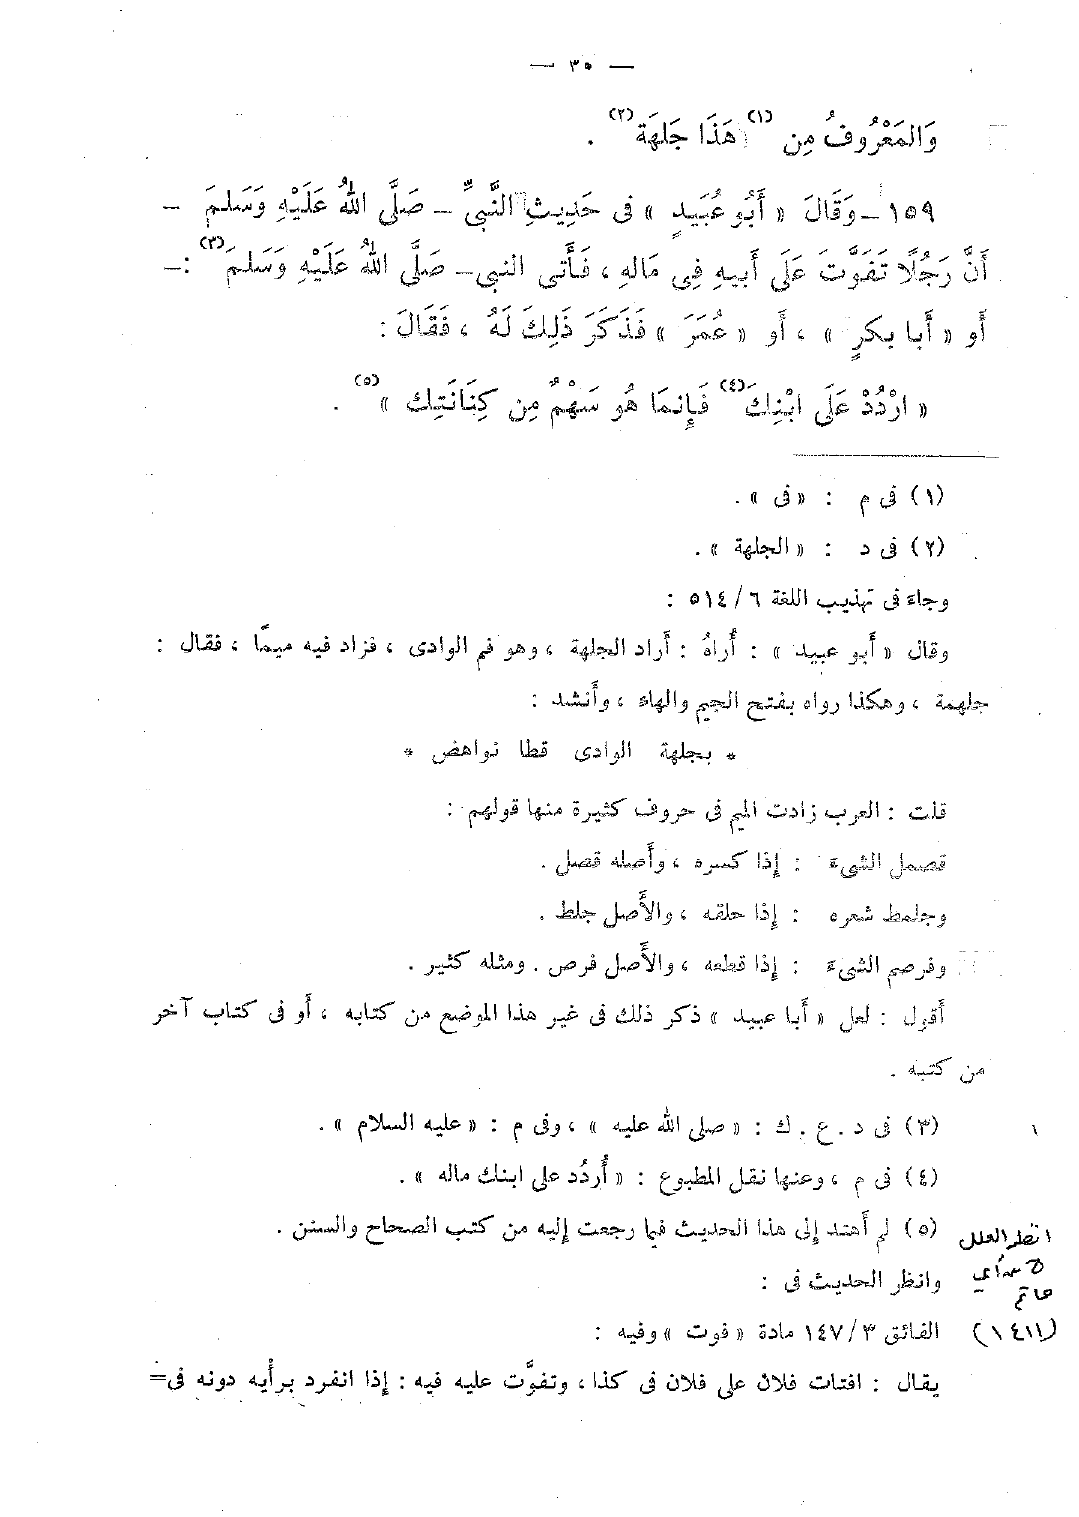 — ٣٥ —
وَالمَعْرُوفُ مِن (١) هَذَا جَلهَة (٢) .
١٥٩ – وَقَالَ « أَبُو عُبَيدٍ » فى حَدِيثِ النَّبىِّ – صَلَّى اللهُ عَلَيْهِ وَسَلمَ –
أَنَّ رَجُلًا تَفَوَّتَ عَلَى أَبيهِ فِى مَالهِ ، فَأَتى النبى – صَلَّى اللهُ عَلَيْهِ وَسَلمَ (٣) : –
أو « أَبا بكرٍ » ، أَو « عُمَرَ » فَذَكَرَ ذَلِكَ لَهُ ، فَقَالَ :
« ارْدُدْ عَلَى ابْنِكَ (٤) فَإِنمَا هُو سَهْمٌ مِن كِنَانَتِك » (٥) .
(١) فى م : « فى » .
(٢) فى د : « الجلهة » .
وجاء فى تهذيب اللغة ٦ / ٥١٤ :
وقال « أَبو عبيد » : أُراهُ : أَراد الجلهة ، وهو فم الوادى ، فزاد فيه ميمًا ، فقال :
جلهمة ، وهكذا رواه بفتح الجيم والهاء ، وأَنشد :
* بجلهة الوادى قطا نواهض *
قلت : العرب زادت الميم فى حروف كثيرة منها قولهم :
قصمل الشىء : إذا كسره ، وأَصله قصل .
وجلمط شعره : إذا حلقه ، والأَصل جلط .
وفرصم الشىء : إذا قطعه ، والأَصل فرص . ومثله كثير .
أَقول : لعل « أَبا عبيد » ذكر ذلك فى غير هذا الموضع من كتابه ، أَو فى كتاب آخر
من كتبه .
(٣) فى د . ع . ك : « صلى الله عليه » ، وفى م : « عليه السلام » .
(٤) فى م ، وعنها نقل المطبوع : « أُردُد على ابنك ماله » .
(٥) لم أَهتد إلى هذا الحديث فيما رجعت إليه من كتب الصحاح والسنن .
وانظر الحديث فى :
الفائق ٣ / ١٤٧ مادة « فوت » وفيه :
يقال : افتات فلان على فلان فى كذا ، وتفوَّت عليه فيه : إذا انفرد برأْيه دونه فى =
انظر العلل
أبي
حاتم
(١٤١١)